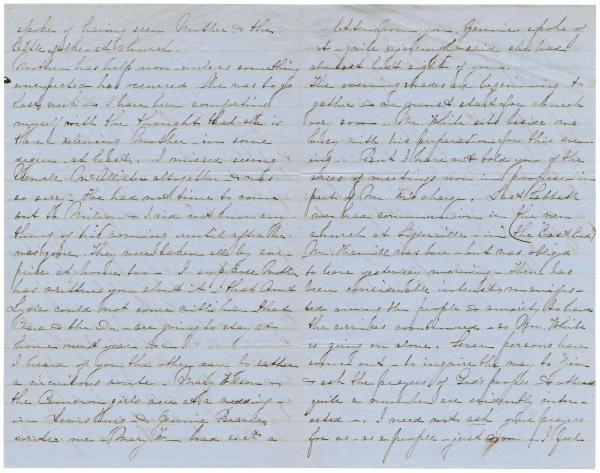 spoke of having seen Mother & the
little folks at church.
Mother has help now unless something
unexpected has occurred. She was to go
last week & I have been comforting
myself with the thought that she is
there relieving Mother in some
degree at least. I missed seeing
Uncle McAllister altogether & was
so sorry. He had not time to come
out to & I did not know any
thing of his coming until after he
was gone. They were taken all by sur
prise at home too. I suppose Mother
has written you about it. that Aunt
Lizzie could not come with him. that
& the Dr. are going to stay at
home next year &c
I heard of you the other day by rather
a circuitous route. Mary Wilson &
the Cameron girls were at a wedding
in Lewistown & Jennie
writes me Mary W had with a
letter from you. Jennie spoke of
it quite said she had
almost lost sight of you.
The evening shades are beginning to
gather & we must start for church
very soon. Mr. White sits beside me
busy with his preparation for this even
ing. But I have not told you of the
series of meetings now in progress in
part of Mr. W's charge. Last Sabbath
was her communion in the new
church at in (the East End)
Mr. Hamill was here but was obliged
to leave yesterday morning. There has
been considerable interest manifes-
ted among the people & anxiety to have
the services continued so Mr. White
is going on alone. Three persons have
come out to inquire the way to Zion
& ask the prayers of God's people & indeed
quite a number are evidently inter-
ested. I need not ask your prayers
for us as a people just you I feel